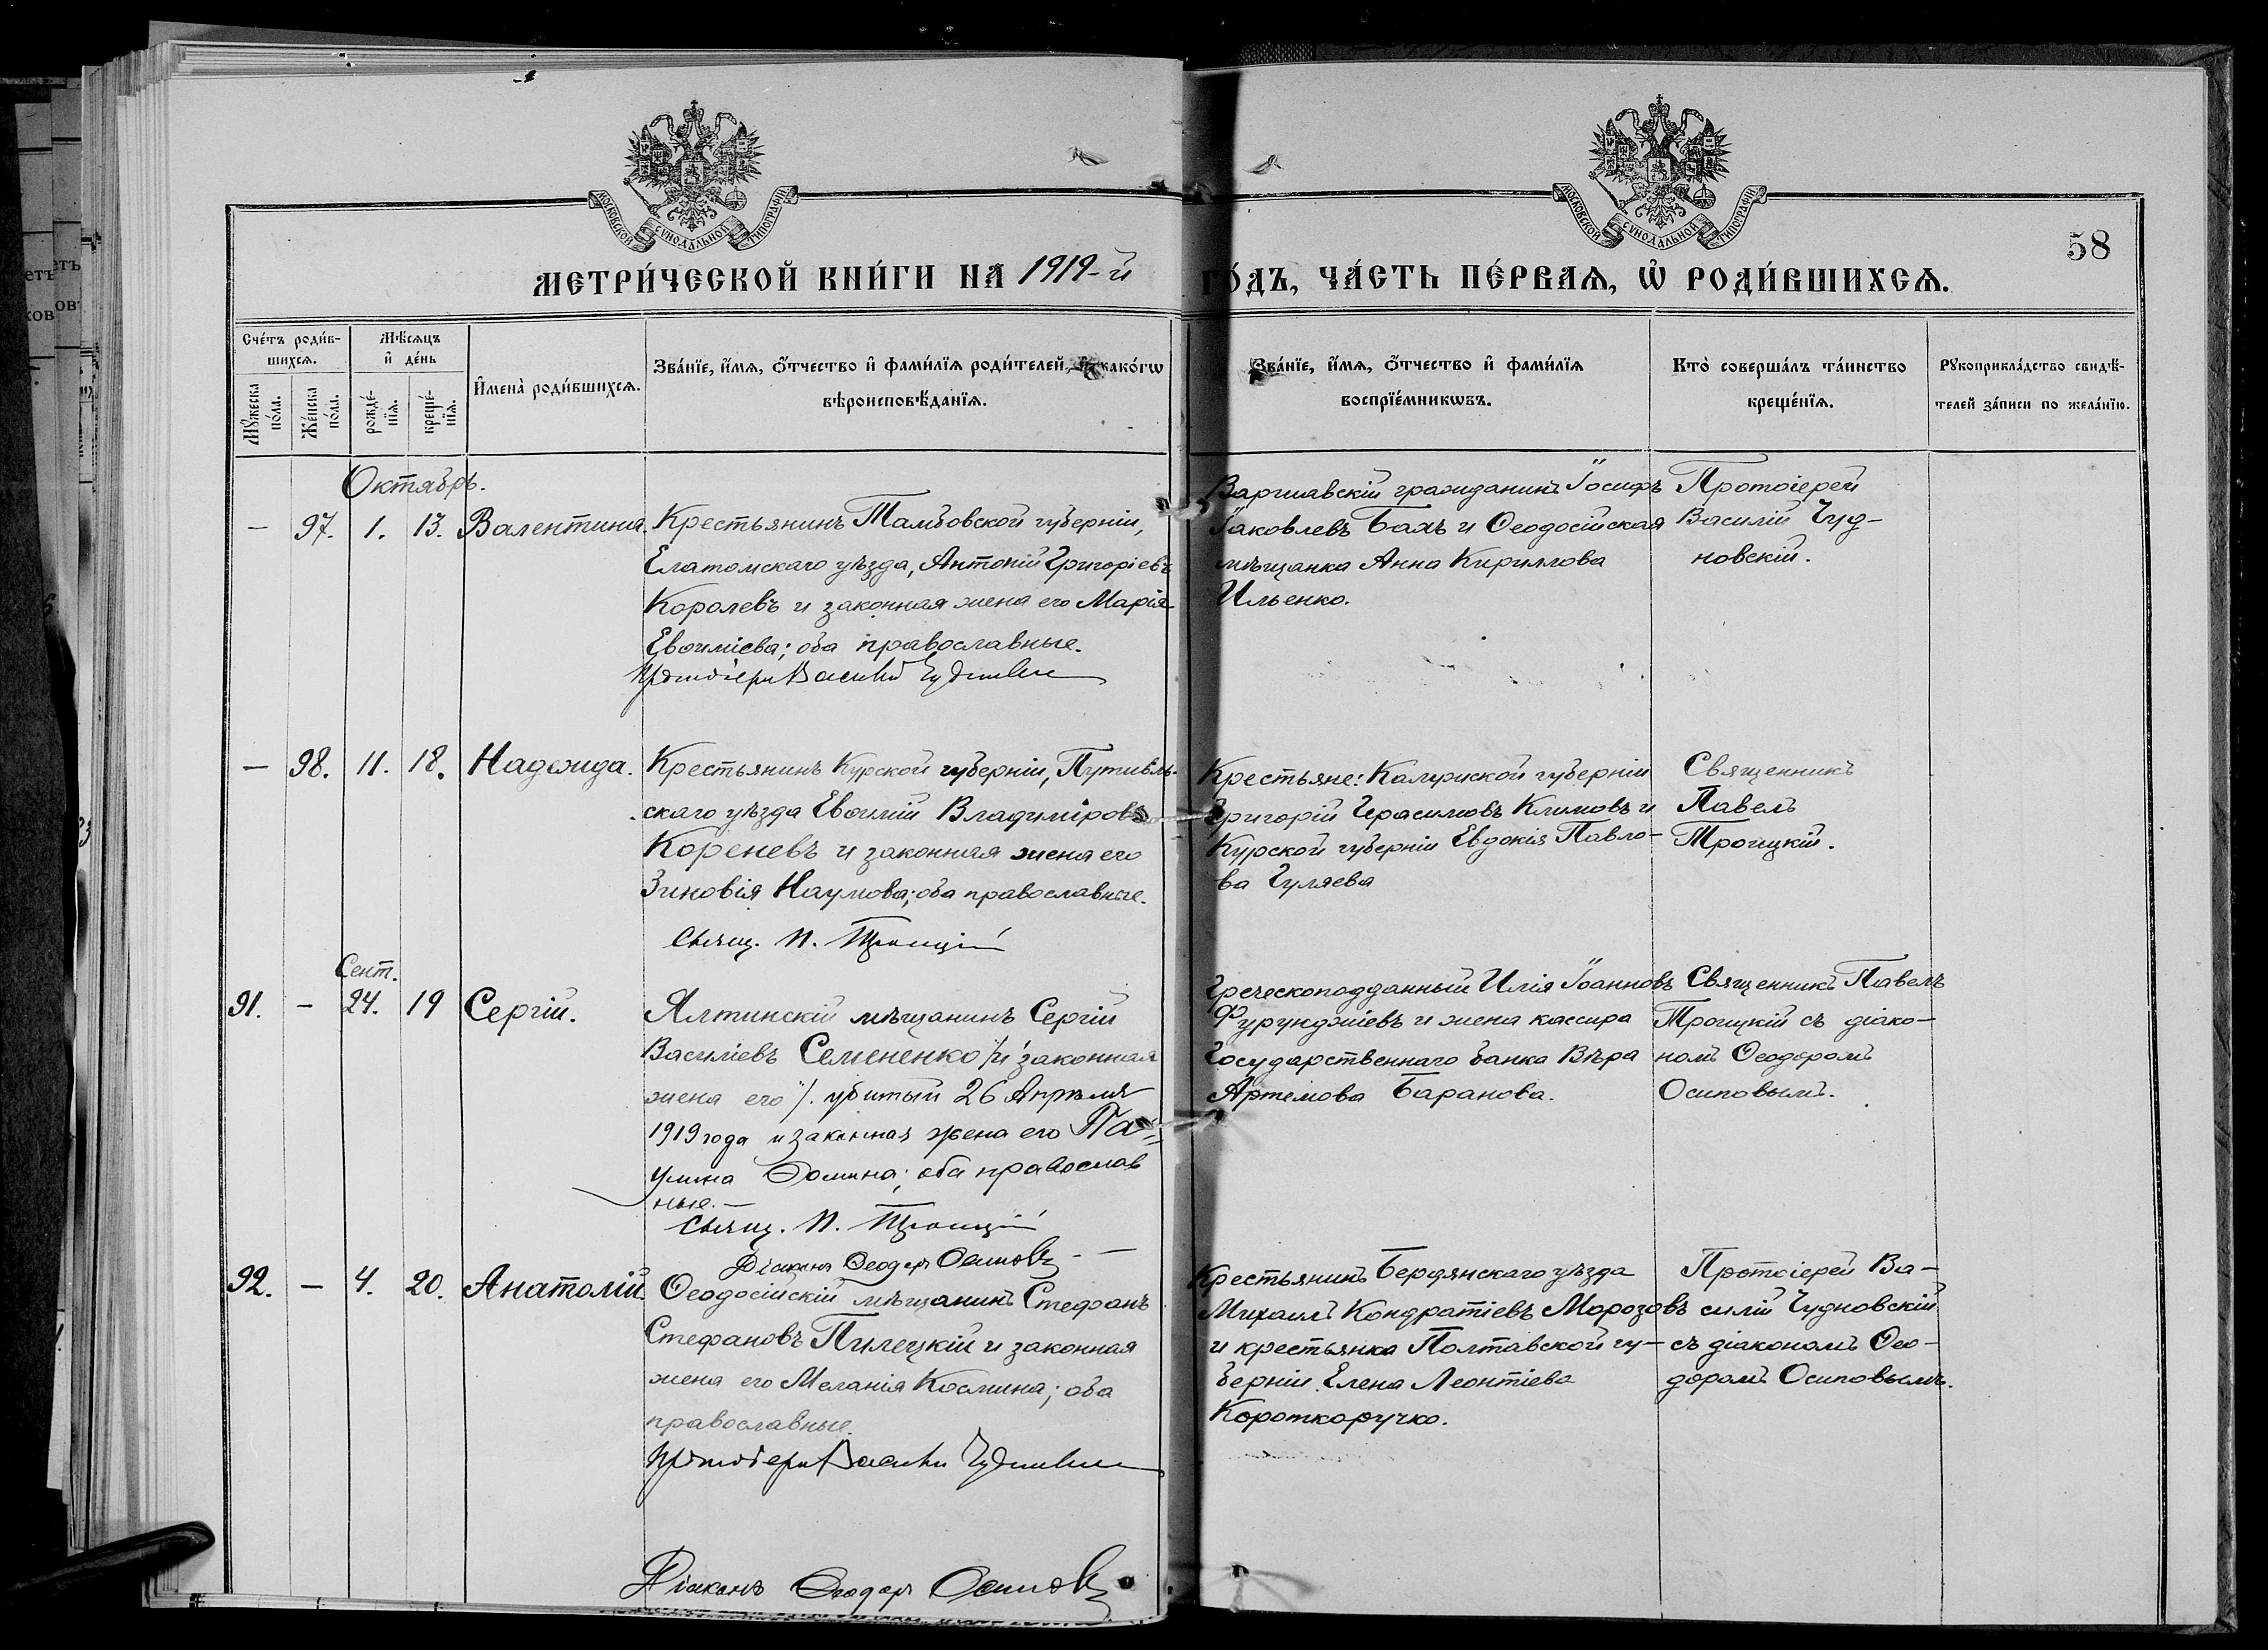 МОСКОВСКОЙ СѴНОДАЛЬНОЙ ТИПОГРАФІИ
МОСКОВСКОЙ СѴНОДАЛЬНОЙ ТИПОГРАФІИ
58
МЕТРИ́ЧЕСКОЙ КНИ́ГИ НА 1919-й ГО́ДЪ, ЧА́СТЬ ПЕ́РВАѦ, Ѡ҆ РОДИ́ВШИХСѦ.
Сче́тъ роди́в-
шихсѧ.
Мꙋ́жеска по́ла.
Же́нска по́ла.
Мѣ́сѧцъ
и҆ де́нь
рожде́-нїѧ.
креще́-нїѧ.
И҆мена̀ роди́вшихсѧ.
Зва́нїе, и҆́мѧ, ѻ҆́тчество и҆ фами́лїѧ роди́телей, и҆ како́гѡ
вѣроисповѣ́данїѧ.
Зва́нїе, и҆́мѧ, ѻ҆́тчество и҆ фами́лїѧ
воспрїе́мникѡвъ.
Кто̀ соверша́лъ та́инство
креще́нїѧ.
Рꙋкоприкла́дство свидѣ́-
телей за́писи по жела́нїю.
Октябрь.
— 97. 1. 13. Валентина.
Крестьянинъ Тамбовской губерніи,
Елатомскаго уѣзда, Антоній Григоріевъ
Королевъ и законная жена его Марія
Евѳиміева; оба православные.
Протоіерей Василій Чудновскій
Варшавскій гражданинъ Іосифъ
Іаковлевъ Бахъ и Ѳеодосійская
мѣщанка Анна Кириллова
Ильенко.
Протоіерей
Василій Чуд-
новскій.
— 98. 11. 18. Надежда.
Крестьянинъ Курской губерніи, Путивль-
скаго уѣзда Евѳимій Владиміровъ
Кореневъ и законная жена его
Зиновія Наумова; оба православные.
Свящ. П. Троицкій
Крестьяне: Калужской губерніи
Григорій Герасимовъ Климовъ и
Курской губерніи Евдокія Павло-
ва Гуляева
Священникъ
Павелъ
Троицкій.
Сент.
91. — 24. 19 Сергій.
Ялтинскій мѣщанинъ Сергій
Василіевъ Семененко /и законная
жена его/. убитый 26 Апрѣля
1919 года и законная жена его Па-
улина Ѳомина; оба православ
ные.—
Свящ. П. Троицкій
Діаконъ Ѳеодоръ Осиповъ
Греческоподданный Илія Іоанновъ
Фурунджіевъ и жена кассира
Государственнаго банка Вѣра
Артемова Баранова.
Священникъ Павелъ
Троицкій съ діако-
номъ Ѳеодоромъ
Осиповымъ.
92. — 4. 20. Анатолій.
Ѳеодосійскій мѣщанинъ Стефанъ
Стефановъ Пилецкій и законная
жена его Меланія Космина; оба
православные.
Протоіерей Василій Чудновскій
Діаконъ Ѳеодоръ Осиповъ
Крестьянинъ Бердянскаго уѣзда
Михаилъ Кондратіевъ Морозовъ
и крестьянка Полтавской гу-
берніи Елена Леонтіева
Короткоручко.
Протоіерей Ва-
силій Чудновскій
съ діакономъ Ѳео-
доромъ Осиповымъ.